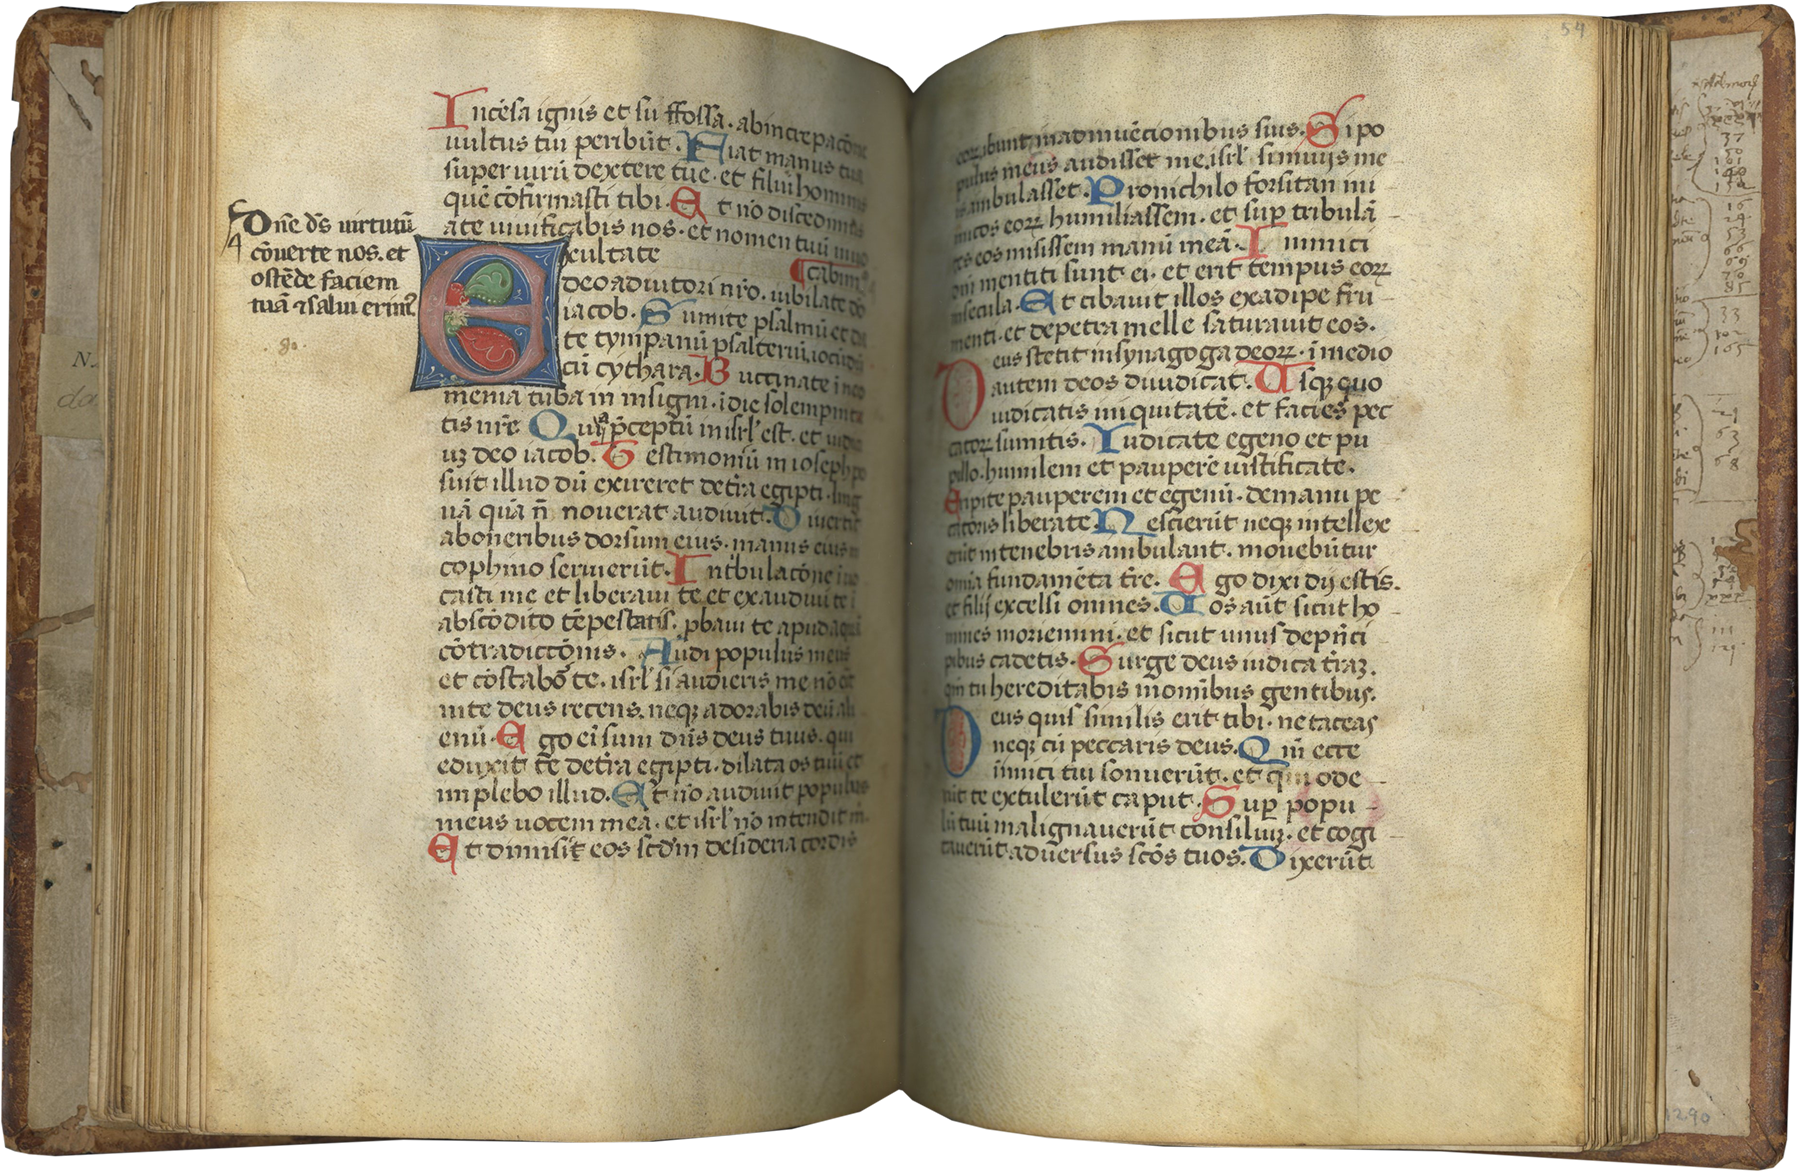 Incēsa ignis et suffossa. ab increpacōne
vultus tui peribūt. Fiat manus tua
super virū dextere tue. et filiū hominis
quē cōfirmasti tibi. Et nō discedimus
a te vivificabis nos. et nomen tuū invo
Exultate cabim9
deo adiutori nr̄o. iubilate dō
iacob. Sumite psalmū et da
te tympanū psalteriū iocūdū
cū cythara. Buccinate i neo
menia tuba in insigni. i die solempnita
tis nr̄e Quia p̄ceptū in isrl' est. et iudici
uʒ deo iacob. Testimoniū in ioseph po
suit illud dū exiret de tr̄a egipti. ling
uā quā n̄ noverat audivit. Divertit
ab oneribus dorsum eius. manus eius in
cophino servierūt. In tr̄bulacōne ivo
casti me et liberavi te et exaudivi te i
abscōdito tēpestatis. pbavi te apud aquā
cōtradictōnis. Audi populus meus
et cōstabō te. isrl' si audieris me nō et
in te deus recens. neqʒ adorabis deū ali
enū. Ego eī sum dn̄s deus tuus. qui
eduxit te de tr̄a egipti. dilata os tuū et
implebo illud. Et nō audivit populus
meus vocem meā. et isrl' nō intendit m
Et dimisit eos scd̄m desideria cordis
Dn̄e ds̄ virtutū
cōverte nos. et
ostēde faciem
tuā ⁊ salvi erim9
80.
54
eoꝝ. ibunt in adinuēcionibus suis. Si po
pulus meus audisset me. isrl' si in viis me
is ambulasset. Pro nichilo forsitan ini
micos eoꝝ humiliassem. et sup tribulā
tes eos misissem manū meā. Inimici
dn̄i mentiti sunt ei. et erit tempus eoꝝ
in secula. Et cibavit illos ex adipe fru
menti. et de petra melle saturavit eos.
Deus stetit in synagoga deoꝝ. i medio
autem deos diiudicat. Usqʒ quo
iudicatis iniquitatē. et facies pec
catoꝝ sumitis. Iudicate egeno et pu
pillo. humilem et pauperē iustificate.
Eripite pauperem et egenū. de manu pe
catoris liberate. Nescierūt neqʒ intellexe
erūt in tenebris ambulant. movebūtur
omīa fundamēta tr̄e. Ego dixi dij estis.
et filij excelsi omnes. Vos aūt sicut ho
mines moriemini. et sicut unus de pn̄ci
pibus cadetis. Surge deus iudica tr̄aʒ.
qm̄ tu hereditabis in omībus gentibus.
Deus quis similis erit tibi. ne taceas
neqʒ cū peccaris deus. Qm̄ ecce
inīmici tui sonuerūt. et qui ode
rūt te extulerūt caput. Sup popu
lū tuū malignaverūt consiliuʒ. et cogi
taverūt adversus scōs tuos. Dixerūt
37
50
161
140
16
24
53
66
69
70
85
33
102
165
51
63
68
1290